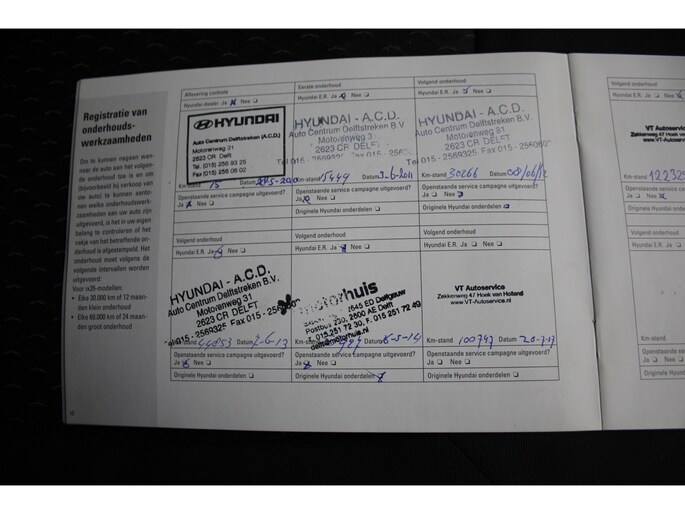 Registratie van
onderhouds-
werkzaamheden
Om te kunnen nagaan wan-
neer de auto aan het volgen-
de onderhoud toe is en om
(bijvoorbeeld bij verkoop van
uw auto) te kunnen aanto-
nen welke onderhoudswerk-
zaamheden aan uw auto zijn
uitgevoerd, is het in uw eigen
belang te controleren of het
vakje van het betreffende on-
derhoud is afgestempeld. Het
onderhoud moet volgens de
volgende intervallen worden
uitgevoerd:
Voor ix35-modellen:
• Elke 30.000 km of 12 maan-
den klein onderhoud
• Elke 60.000 km of 24 maan-
den groot onderhoud
Aflevering controle
Hyundai-dealer Ja Nee
HYUNDAI
Auto Centrum Delftstreken (A.C.D.)
Motorenweg 21
2623 CR Delft
Tel. (015) 256 93 25
Fax (015) 256 06 02
Km-stand 15 Datum
Openstaande service campagne uitgevoerd?
Ja Nee
Eerste onderhoud
Hyundai E.R. Ja Nee
HYUNDAI - A.C.D.
Auto Centrum Delftstreken B.V.
Motorenweg
2623 CR DELFT
Km-stand 15449 Datum 3-6-2011
Openstaande service campagne uitgevoerd?
Ja Nee
Originele Hyundai onderdelen
Volgend onderhoud
Hyundai E.R. Ja Nee
HYUNDAI - A.C.D.
Auto Centrum Delftstreken B.V.
Motorenweg 31
2623 CR DELFT
Tel 015 - 2569325 Fax 015 - 2560602
Km-stand 30266 Datum 08/06/12
Openstaande service campagne uitgevoerd?
Ja Nee
Originele Hyundai onderdelen
Volgend onderhoud
Hyundai E.R. Ja Nee
HYUNDAI - A.C.D.
Auto Centrum Delftstreken B.V.
Motorenweg 31
2623 CR DELFT
Tel 015 - 2569325 Fax 015 - 2560602
Km-stand 44853 Datum
Openstaande service campagne uitgevoerd?
Ja Nee
Originele Hyundai onderdelen
Volgend onderhoud
Hyundai E.R. Ja Nee
motorhuis
2645 ED Delfgauw
Postbus 230, 2600 AE Delft
T. 015 251 72 30, F. 015 251 72 49
delft@motorhuis.nl
Km-stand Datum 6-5-14
Openstaande service campagne uitgevoerd?
Ja Nee
Originele Hyundai onderdelen
Volgend onderhoud
Hyundai E.R. Ja Nee
VT Autoservice
Zekkenweg 47 Hoek van Holland
www.VT-Autoservice.nl
Km-stand 100797 Datum 20-7-17
Openstaande service campagne uitgevoerd?
Ja Nee
Originele Hyundai onderdelen
Volgend onderhoud
Hyundai E.R. Ja Nee
VT Autoservice
Zekkenweg 47 Hoek van
www.VT-Autoservice
Km-stand
Openstaande service
Ja Nee
Originele Hyundai
Volgend onderhoud
Hyundai E.R. Ja
Km-stand
Openstaande service
Ja Nee
Originele Hyundai o